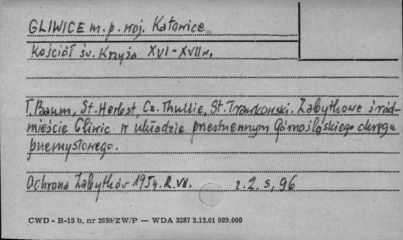 GLIWICE m.p. woj. Katowice
Kościół św. Krzyża XVI-XVII w.
T. Baum, St. Herbst, Cz. Thullie, St. Trawkowski. Zabytkowe śród-
mieście Gliwic w układzie przestrzennym Górnośląskiego okręgu
przemysłowego.
Ochrona Zabytków 1954. R. VII. z. 2. s. 96
CWD - B-15 b, nr 2659/ZW/P — WDA 3287 2.12.61 989.000